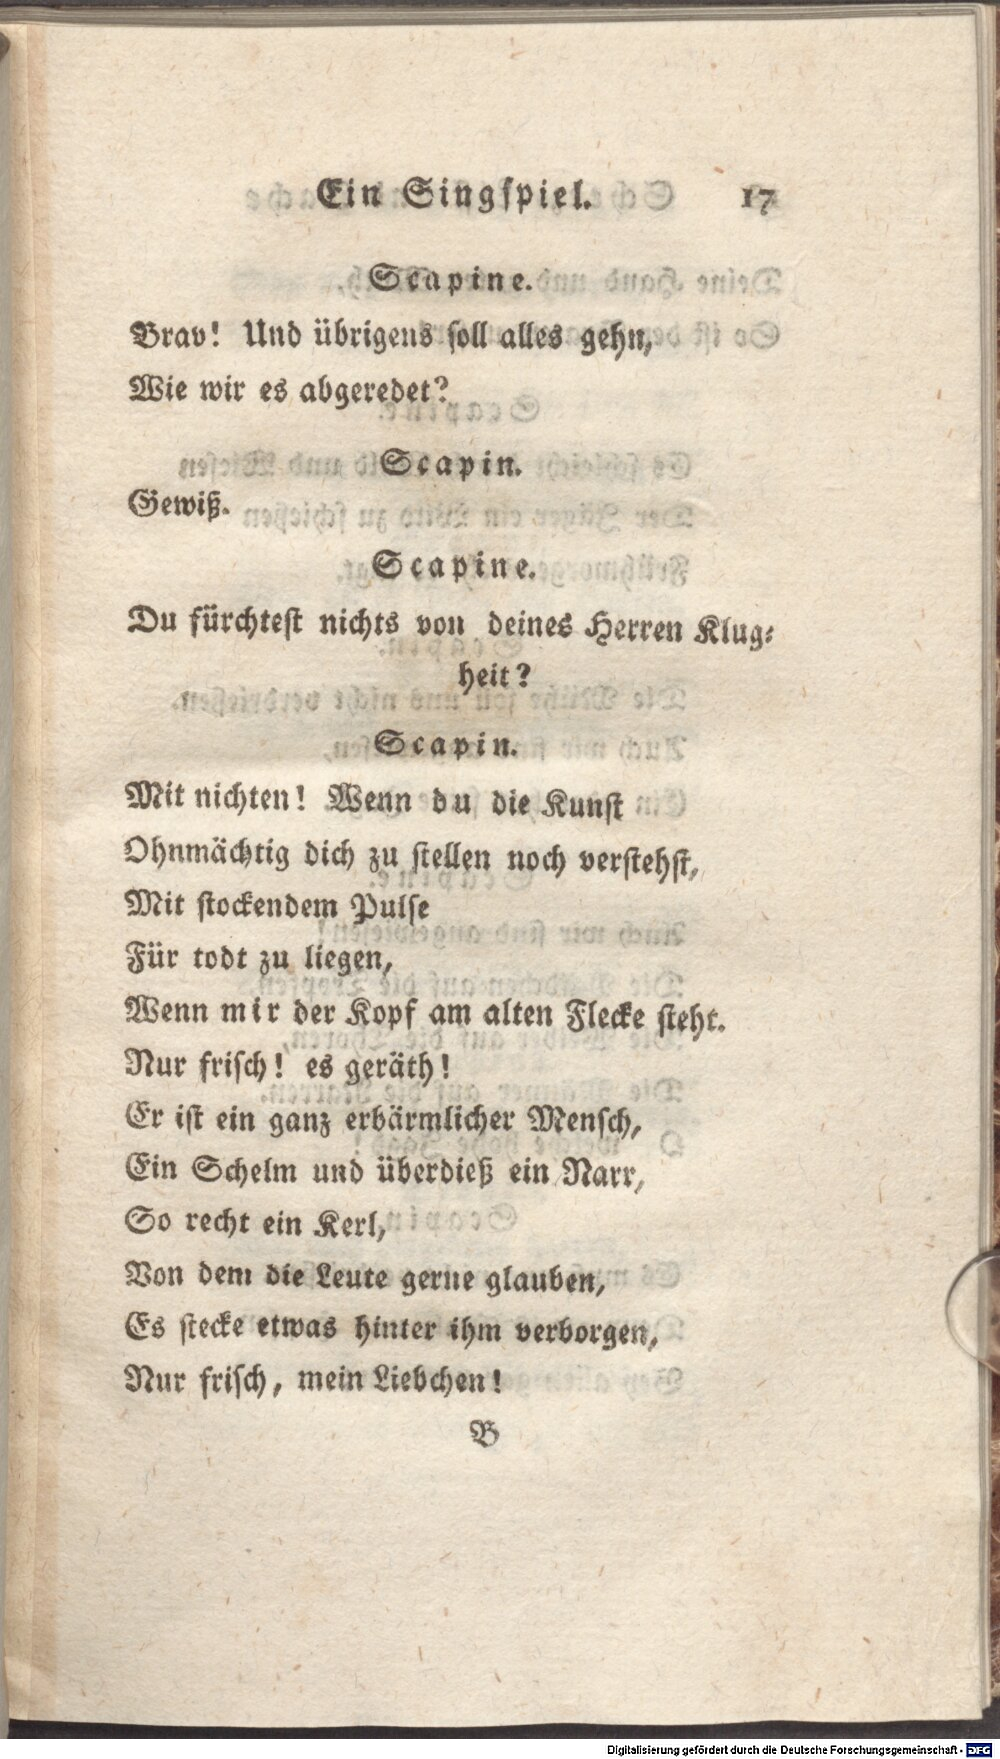 Ein Singspiel. 17
Scapine.
Brav! Und übrigens soll alles gehn,
Wie wir es abgeredet?
Scapin.
Gewiß.
Scapine.
Du fürchtest nichts von deines Herren Klug-
heit?
Scapin.
Mit nichten! Wenn du die Kunst
Ohnmächtig dich zu stellen noch verstehst,
Mit stockendem Pulse
Für todt zu liegen,
Wenn mir der Kopf am alten Flecke steht.
Nur frisch! es geräth!
Er ist ein ganz erbärmlicher Mensch,
Ein Schelm und überdieß ein Narr,
So recht ein Kerl,
Von dem die Leute gerne glauben,
Es stecke etwas hinter ihm verborgen,
Nur frisch, mein Liebchen!
B
Digitalisierung gefördert durch die Deutsche Forschungsgemeinschaft - DFG